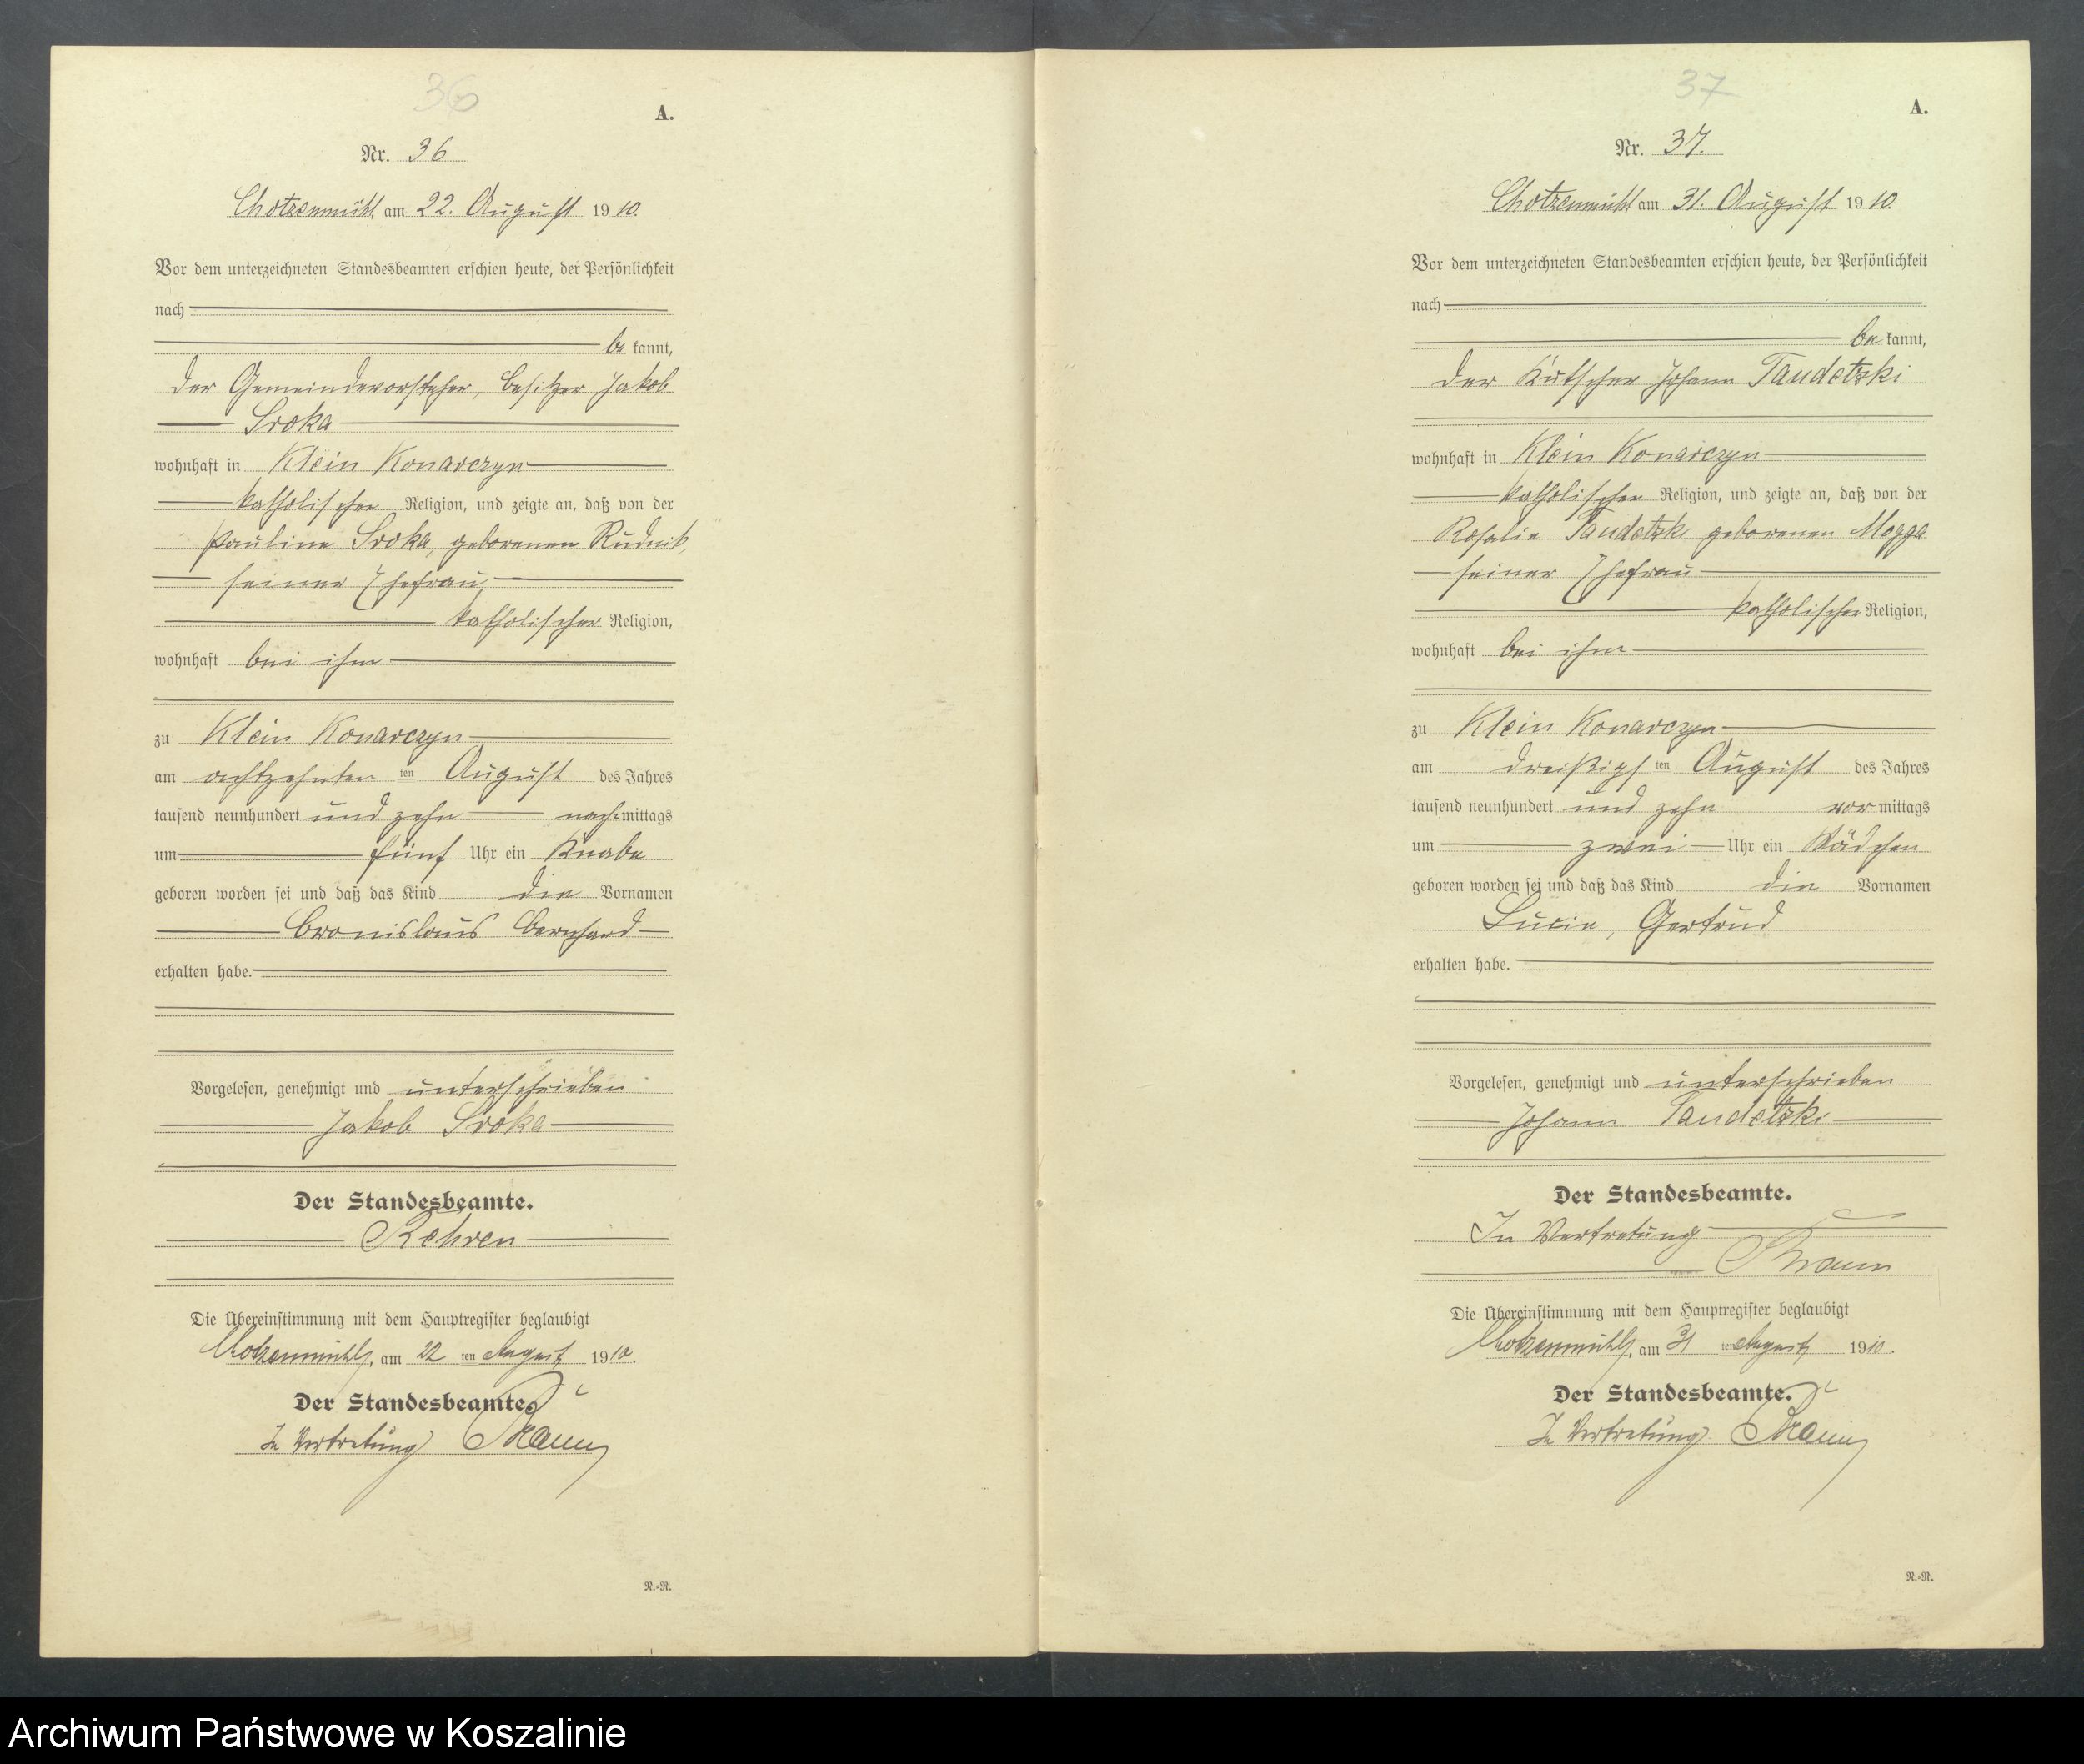 36
A.
Nr. 36
Chotzenmühl, am 22. August 1910.
Vor dem unterzeichneten Standesbeamten erschien heute, der Persönlichkeit
nach
be kannt,
der Gemeindevorsteher, Besitzer Jakob
Sroka
wohnhaft in Klein Konarczyn
katholischer Religion, und zeigte an, daß von der
Pauline Sroka, geborenen Rudnik,
seiner Ehefrau,
katholischer Religion,
wohnhaft bei ihm
zu Klein Konarczyn
am achtzehnten ten August des Jahres
tausend neunhundert und zehn nach-mittags
um fünf Uhr ein Knabe
geboren worden sei und daß das Kind die Vornamen
Bronislaus Bernhard
erhalten habe.
Vorgelesen, genehmigt und unterschrieben
Jakob Sroka
Der Standesbeamte.
Rehren
Die Übereinstimmung mit dem Hauptregister beglaubigt
Chotzenmühl, am 22 ten August 1910.
Der Standesbeamte.
In Vertretung
N.-N.
37
A.
Nr. 37.
Chotzenmühl am 31. August 1910.
Vor dem unterzeichneten Standesbeamten erschien heute, der Persönlichkeit
nach
be kannt,
der Kutscher Johann Taudetzki
wohnhaft in Klein Konarczyn
katholischer Religion, und zeigte an, daß von der
Rosalie Taudetzki geborenen Mogga
seiner Ehefrau
katholischer Religion,
wohnhaft bei ihm
zu Klein Konarczyn
am dreißigs ten August des Jahres
tausend neunhundert und zehn vor mittags
um zwei Uhr ein Mädchen
geboren worden sei und daß das Kind die Vornamen
Lucie, Gertrud
erhalten habe.
Vorgelesen, genehmigt und unterschrieben
Johann Taudetzki
Der Standesbeamte.
In Vertretung
Die Übereinstimmung mit dem Hauptregister beglaubigt
Chotzenmühl, am 31 ten August 1910.
Der Standesbeamte.
In Vertretung
N.-N.
Archiwum Państwowe w Koszalinie